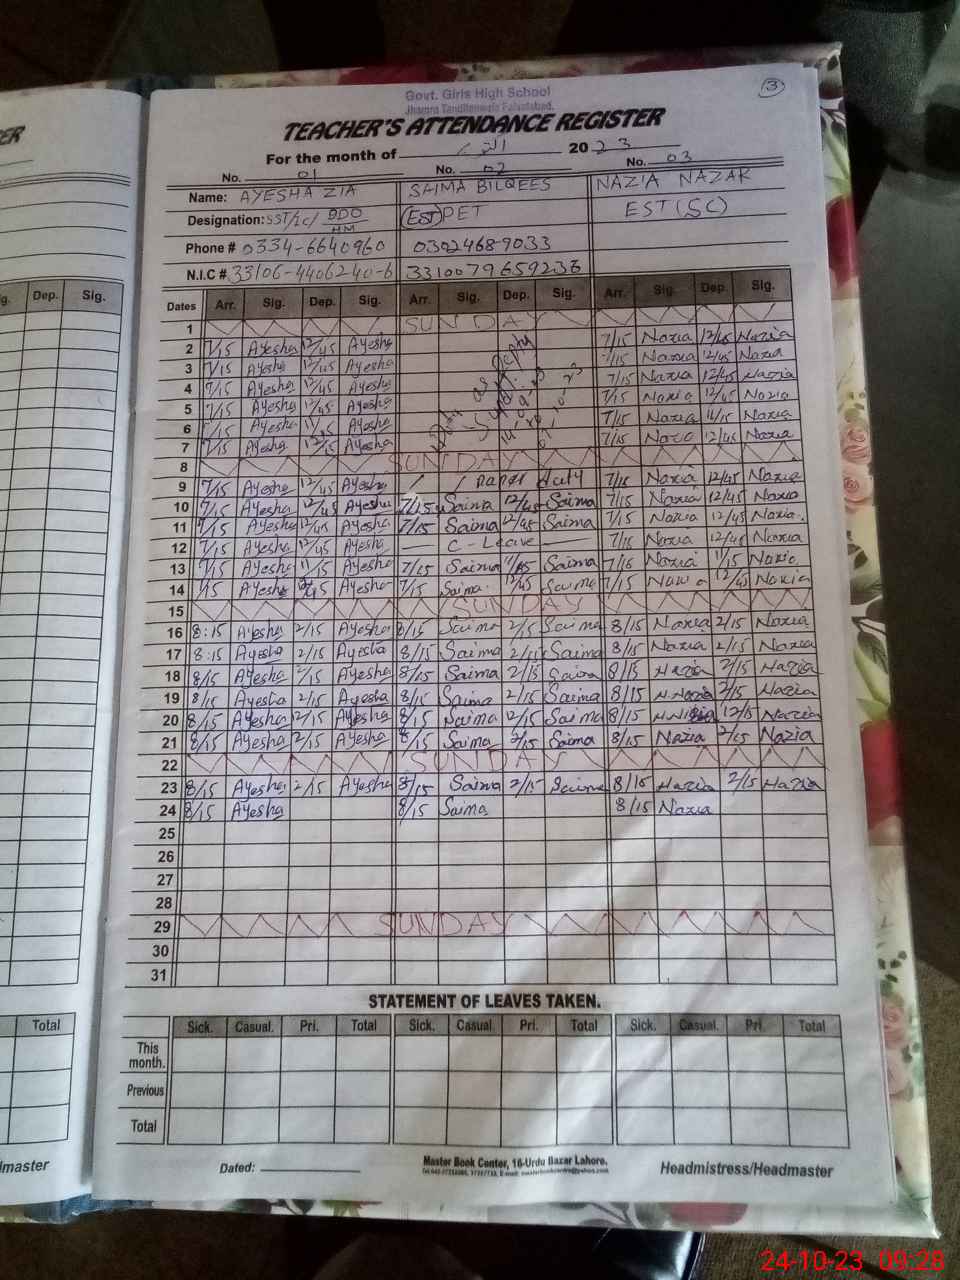 3
Govt. Girls High School
Jhamra Tandlianwala Faisalabad.
TEACHER'S ATTENDANCE REGISTER
For the month of اکتوبر 2023
No. 01 No. 02 No. 03
Name: AYESHA ZIA SAIMA BILQEES NAZIA NAZAR
Designation: SST/Sc/ DDO HM (Est) PET EST (SC)
Phone # 0334-6640960 03024689033
N.I.C # 33106-4406240-6 3310079659236
g. Dep. Sig. Dates Arr. Sig. Dep. Sig. Arr. Sig. Dep. Sig. Arr. Sig. Dep. Sig.
1 SUNDAY
2 7/15 Ayesha 12/45 Ayesha 7/15 Nazia 12/45 Nazia
3 7/15 Ayesha 12/45 Ayesha 7/15 Nazia 12/45 Nazia
4 7/15 Ayesha 12/45 Ayesha 7/15 Nazia 12/45 Nazia
5 7/15 Ayesha 12/45 Ayesha 7/15 Nazia 12/45 Nazia
6 7/15 Ayesha 11/15 Ayesha 7/15 Nazia 11/15 Nazia
7 7/15 Ayesha 12/45 Ayesha 7/15 Nazia 12/45 Nazia
8 SUNDAY
9 7/15 Ayesha 12/45 Ayesha Paper Duty 7/15 Nazia 12/45 Nazia
10 7/15 Ayesha 12/45 Ayesha 7/15 Saima 12/45 Saima 7/15 Nazia 12/45 Nazia
11 7/15 Ayesha 12/45 Ayesha 7/15 Saima 12/45 Saima 7/15 Nazia 12/45 Nazia
12 7/15 Ayesha 12/45 Ayesha C-Leave 7/15 Nazia 12/45 Nazia
13 7/15 Ayesha 11/15 Ayesha 7/15 Saima 11/15 Saima 7/15 Nazia 11/15 Nazia
14 7/15 Ayesha 12/45 Ayesha 7/15 Saima 12/45 Saima 7/15 Nazia 12/45 Nazia
15 SUNDAY
16 8:15 Ayesha 2/15 Ayesha 8/15 Saima 2/15 Saima 8/15 Nazia 2/15 Nazia
17 8:15 Ayesha 2/15 Ayesha 8/15 Saima 2/15 Saima 8/15 Nazia 2/15 Nazia
18 8/15 Ayesha 2/15 Ayesha 8/15 Saima 2/15 Saima 8/15 Nazia 2/15 Nazia
19 8/15 Ayesha 2/15 Ayesha 8/15 Saima 2/15 Saima 8/15 Nazia 2/15 Nazia
20 8/15 Ayesha 12/15 Ayesha 8/15 Saima 12/15 Saima 8/15 12/15 Nazia
21 8/15 Ayesha 2/15 Ayesha 8/15 Saima 2/15 Saima 8/15 Nazia 2/15 Nazia
22 SUNDAY
23 8/15 Ayesha 2/15 Ayesha 8/15 Saima 2/15 Saima 8/15 Nazia 2/15 Nazia
24 8/15 Ayesha 8/15 Saima 8/15 Nazia
25
26
27
28
29 SUNDAY
30
31
STATEMENT OF LEAVES TAKEN.
Total Sick. Casual. Pri. Total Sick. Casual Pri. Total Sick. Casual. Pri. Total
This month.
Previous
Total
Dated:
Master Book Center, 16-Urdu Bazar Lahore.
Headmistress/Headmaster
24-10-23 09:28